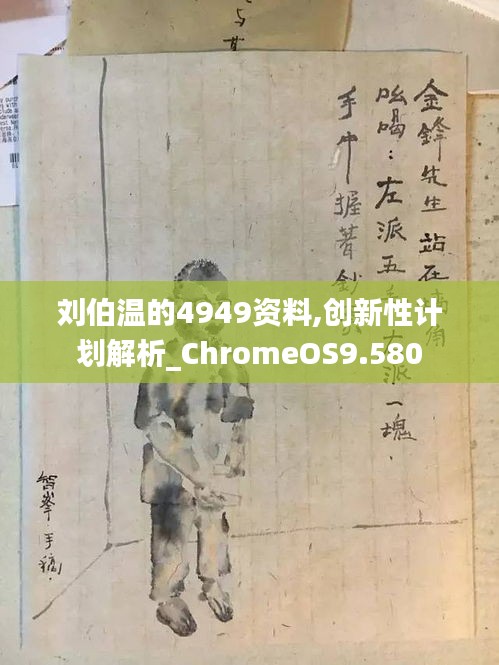 与其
金鋒先生站在 角
吆喝：左派五 右派一塊.
手中握著鈔
刘伯温的4949资料,创新性计
划解析_ChromeOS9.580
智峯手稿